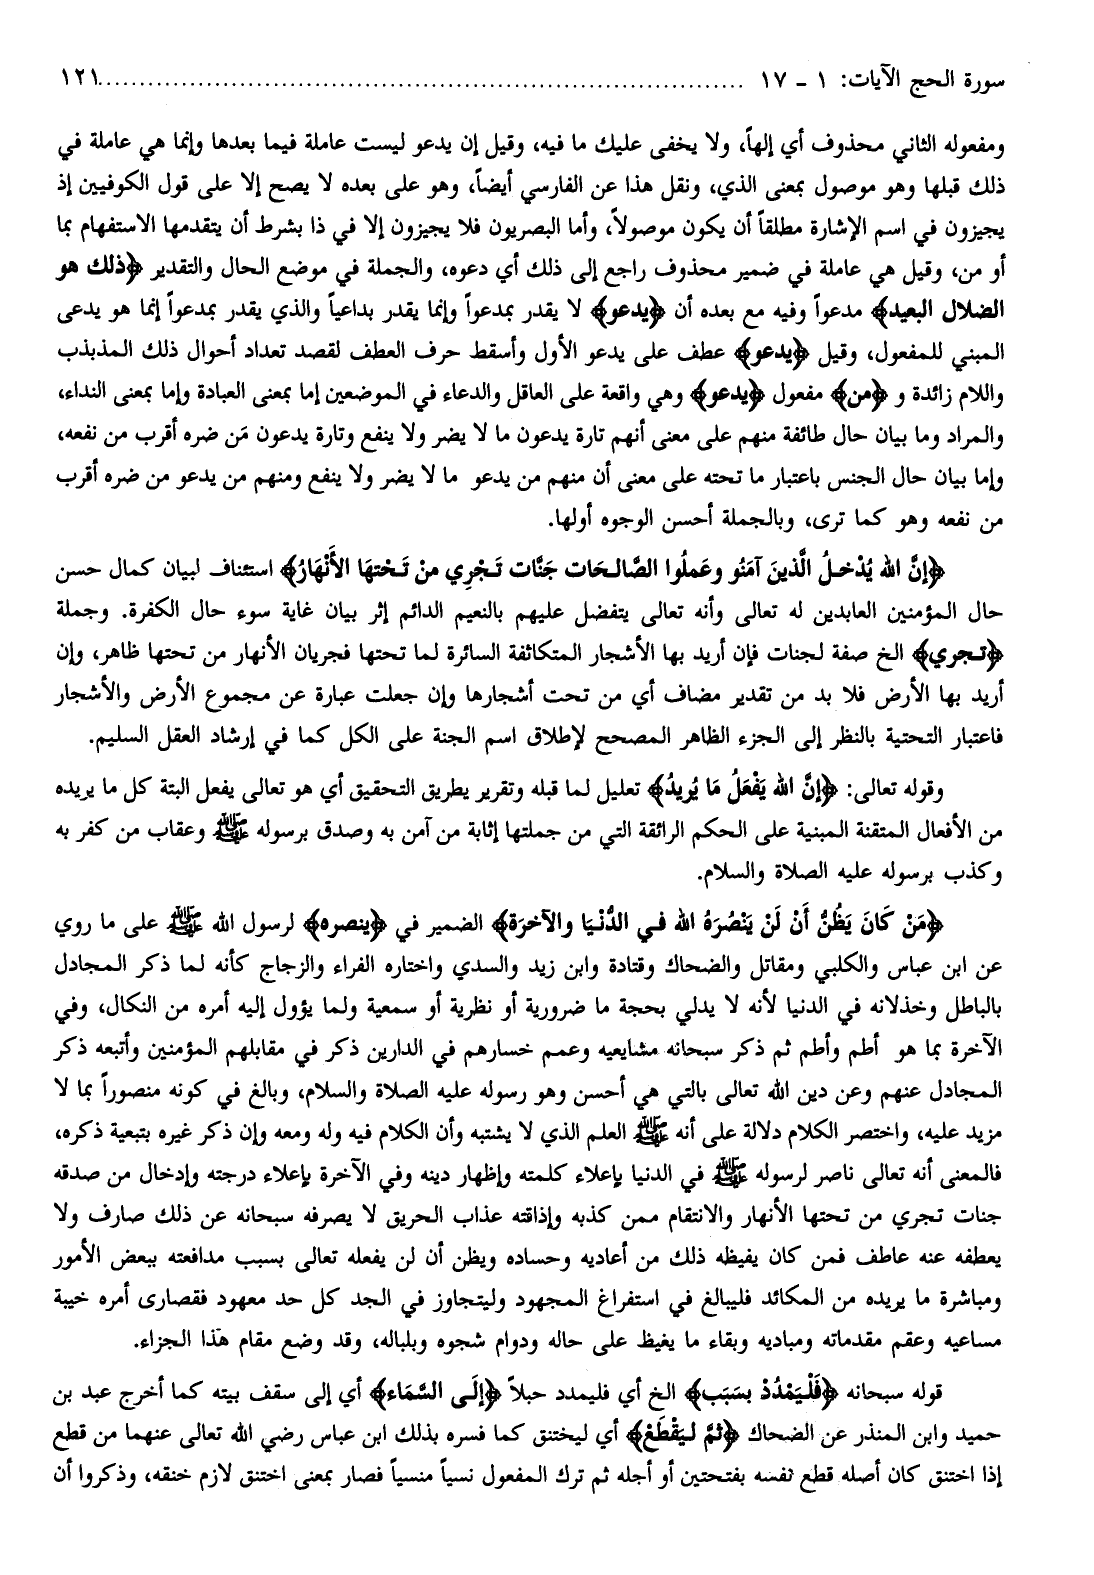 سورة الحج الآيات: ١ - ١٧ ............................................................ ١٢١
ومفعوله الثاني محذوف أي إلهاً، ولا يخفى عليك ما فيه، وقيل إن يدعو ليست عاملة فيما بعدها وإنما هي عاملة في
ذلك قبلها وهو موصول بمعنى الذي، ونقل هذا عن الفارسي أيضاً، وهو على بعده لا يصح إلا على قول الكوفيين إذ
يجيزون في اسم الإشارة مطلقاً أن يكون موصولاً، وأما البصريون فلا يجيزون إلا في ذا بشرط أن يتقدمها الاستفهام بما
أو من، وقيل هي عاملة في ضمير محذوف راجع إلى ذلك أي دعوه، والجملة في موضع الحال والتقدير ﴿ذلك هو
الضلال البعيد﴾ مدعواً وفيه مع بعده أن ﴿يدعو﴾ لا يقدر بمدعواً وإنما يقدر بداعياً والذي يقدر بمدعواً إنما هو يدعى
المبني للمفعول، وقيل ﴿يدعو﴾ عطف على يدعو الأول وأسقط حرف العطف لقصد تعداد أحوال ذلك المذبذب
واللام زائدة و ﴿من﴾ مفعول ﴿يدعو﴾ وهي واقعة على العاقل والدعاء في الموضعين إما بمعنى العبادة وإما بمعنى النداء،
والمراد وما بيان حال طائفة منهم على معنى أنهم تارة يدعون ما لا يضر ولا ينفع وتارة يدعون مَن ضره أقرب من نفعه،
وإما بيان حال الجنس باعتبار ما تحته على معنى أن منهم من يدعو ما لا يضر ولا ينفع ومنهم من يدعو من ضره أقرب
من نفعه وهو كما ترى، وبالجملة أحسن الوجوه أولها.
﴿إنَّ الله يُدْخلُ الَّذينَ آمَنُو وعَملُوا الصَّالحَات جَنَّات تَجْرِي منْ تَحْتهَا الأَنْهَارُ﴾ استئناف لبيان كمال حسن
حال المؤمنين العابدين له تعالى وأنه تعالى يتفضل عليهم بالنعيم الدائم إثر بيان غاية سوء حال الكفرة. وجملة
﴿تجري﴾ الخ صفة لجنات فإن أريد بها الأشجار المتكاثفة السائرة لما تحتها فجريان الأنهار من تحتها ظاهر، وإن
أريد بها الأرض فلا بد من تقدير مضاف أي من تحت أشجارها وإن جعلت عبارة عن مجموع الأرض والأشجار
فاعتبار التحتية بالنظر إلى الجزء الظاهر المصحح لإطلاق اسم الجنة على الكل كما في إرشاد العقل السليم.
وقوله تعالى: ﴿إنَّ الله يَفْعَلُ مَا يُريدُ﴾ تعليل لما قبله وتقرير يطريق التحقيق أي هو تعالى يفعل البتة كل ما يريده
من الأفعال المتقنة المبنية على الحكم الرائقة التي من جملتها إثابة من آمن به وصدق برسوله ﷺ وعقاب من كفر به
وكذب برسوله عليه الصلاة والسلام.
﴿مَنْ كَانَ يَظُنُّ أَنْ لَنْ يَنْصُرَهُ الله في الدُّنْيَا والآخرَة﴾ الضمير في ﴿ينصره﴾ لرسول الله ﷺ على ما روي
عن ابن عباس والكلبي ومقاتل والضحاك وقتادة وابن زيد والسدي واختاره الفراء والزجاج كأنه لما ذكر المجادل
بالباطل وخذلانه في الدنيا لأنه لا يدلي بحجة ما ضرورية أو نظرية أو سمعية ولما يؤول إليه أمره من النكال، وفي
الآخرة بما هو أطم وأطم ثم ذكر سبحانه مشايعيه وعمم خسارهم في الدارين ذكر في مقابلهم المؤمنين وأتبعه ذكر
المجادل عنهم وعن دين الله تعالى بالتي هي أحسن وهو رسوله عليه الصلاة والسلام، وبالغ في كونه منصوراً بما لا
مزيد عليه، واختصر الكلام دلالة على أنه ﷺ العلم الذي لا يشتبه وأن الكلام فيه وله ومعه وإن ذكر غيره بتبعية ذكره،
فالمعنى أنه تعالى ناصر لرسوله ﷺ في الدنيا بإعلاء كلمته وإظهار دينه وفي الآخرة بإعلاء درجته وإدخال من صدقه
جنات تجري من تحتها الأنهار والانتقام ممن كذبه وإذاقته عذاب الحريق لا يصرفه سبحانه عن ذلك صارف ولا
يعطفه عنه عاطف فمن كان يفيظه ذلك من أعاديه وحساده ويظن أن لن يفعله تعالى بسبب مدافعته ببعض الأمور
ومباشرة ما يريده من المكائد فليبالغ في استفراغ المجهود وليتجاوز في الجد كل حد معهود فقصارى أمره خيبة
مساعيه وعقم مقدماته ومباديه وبقاء ما يغيظ على حاله ودوام شجوه وبلباله، وقد وضع مقام هذا الجزاء.
قوله سبحانه ﴿فَلْيَمْدُدْ بسَبَب﴾ الخ أي فليمدد حبلاً ﴿إلَى السَّمَاء﴾ أي إلى سقف بيته كما أخرج عبد بن
حميد وابن المنذر عن الضحاك ﴿ثمَّ ليَقْطَعْ﴾ أي ليختنق كما فسره بذلك ابن عباس رضي الله تعالى عنهما من قطع
إذا اختنق كان أصله قطع نفسه بفتحتين أو أجله ثم ترك المفعول نسياً منسياً فصار بمعنى اختنق لازم خنقه، وذكروا أن